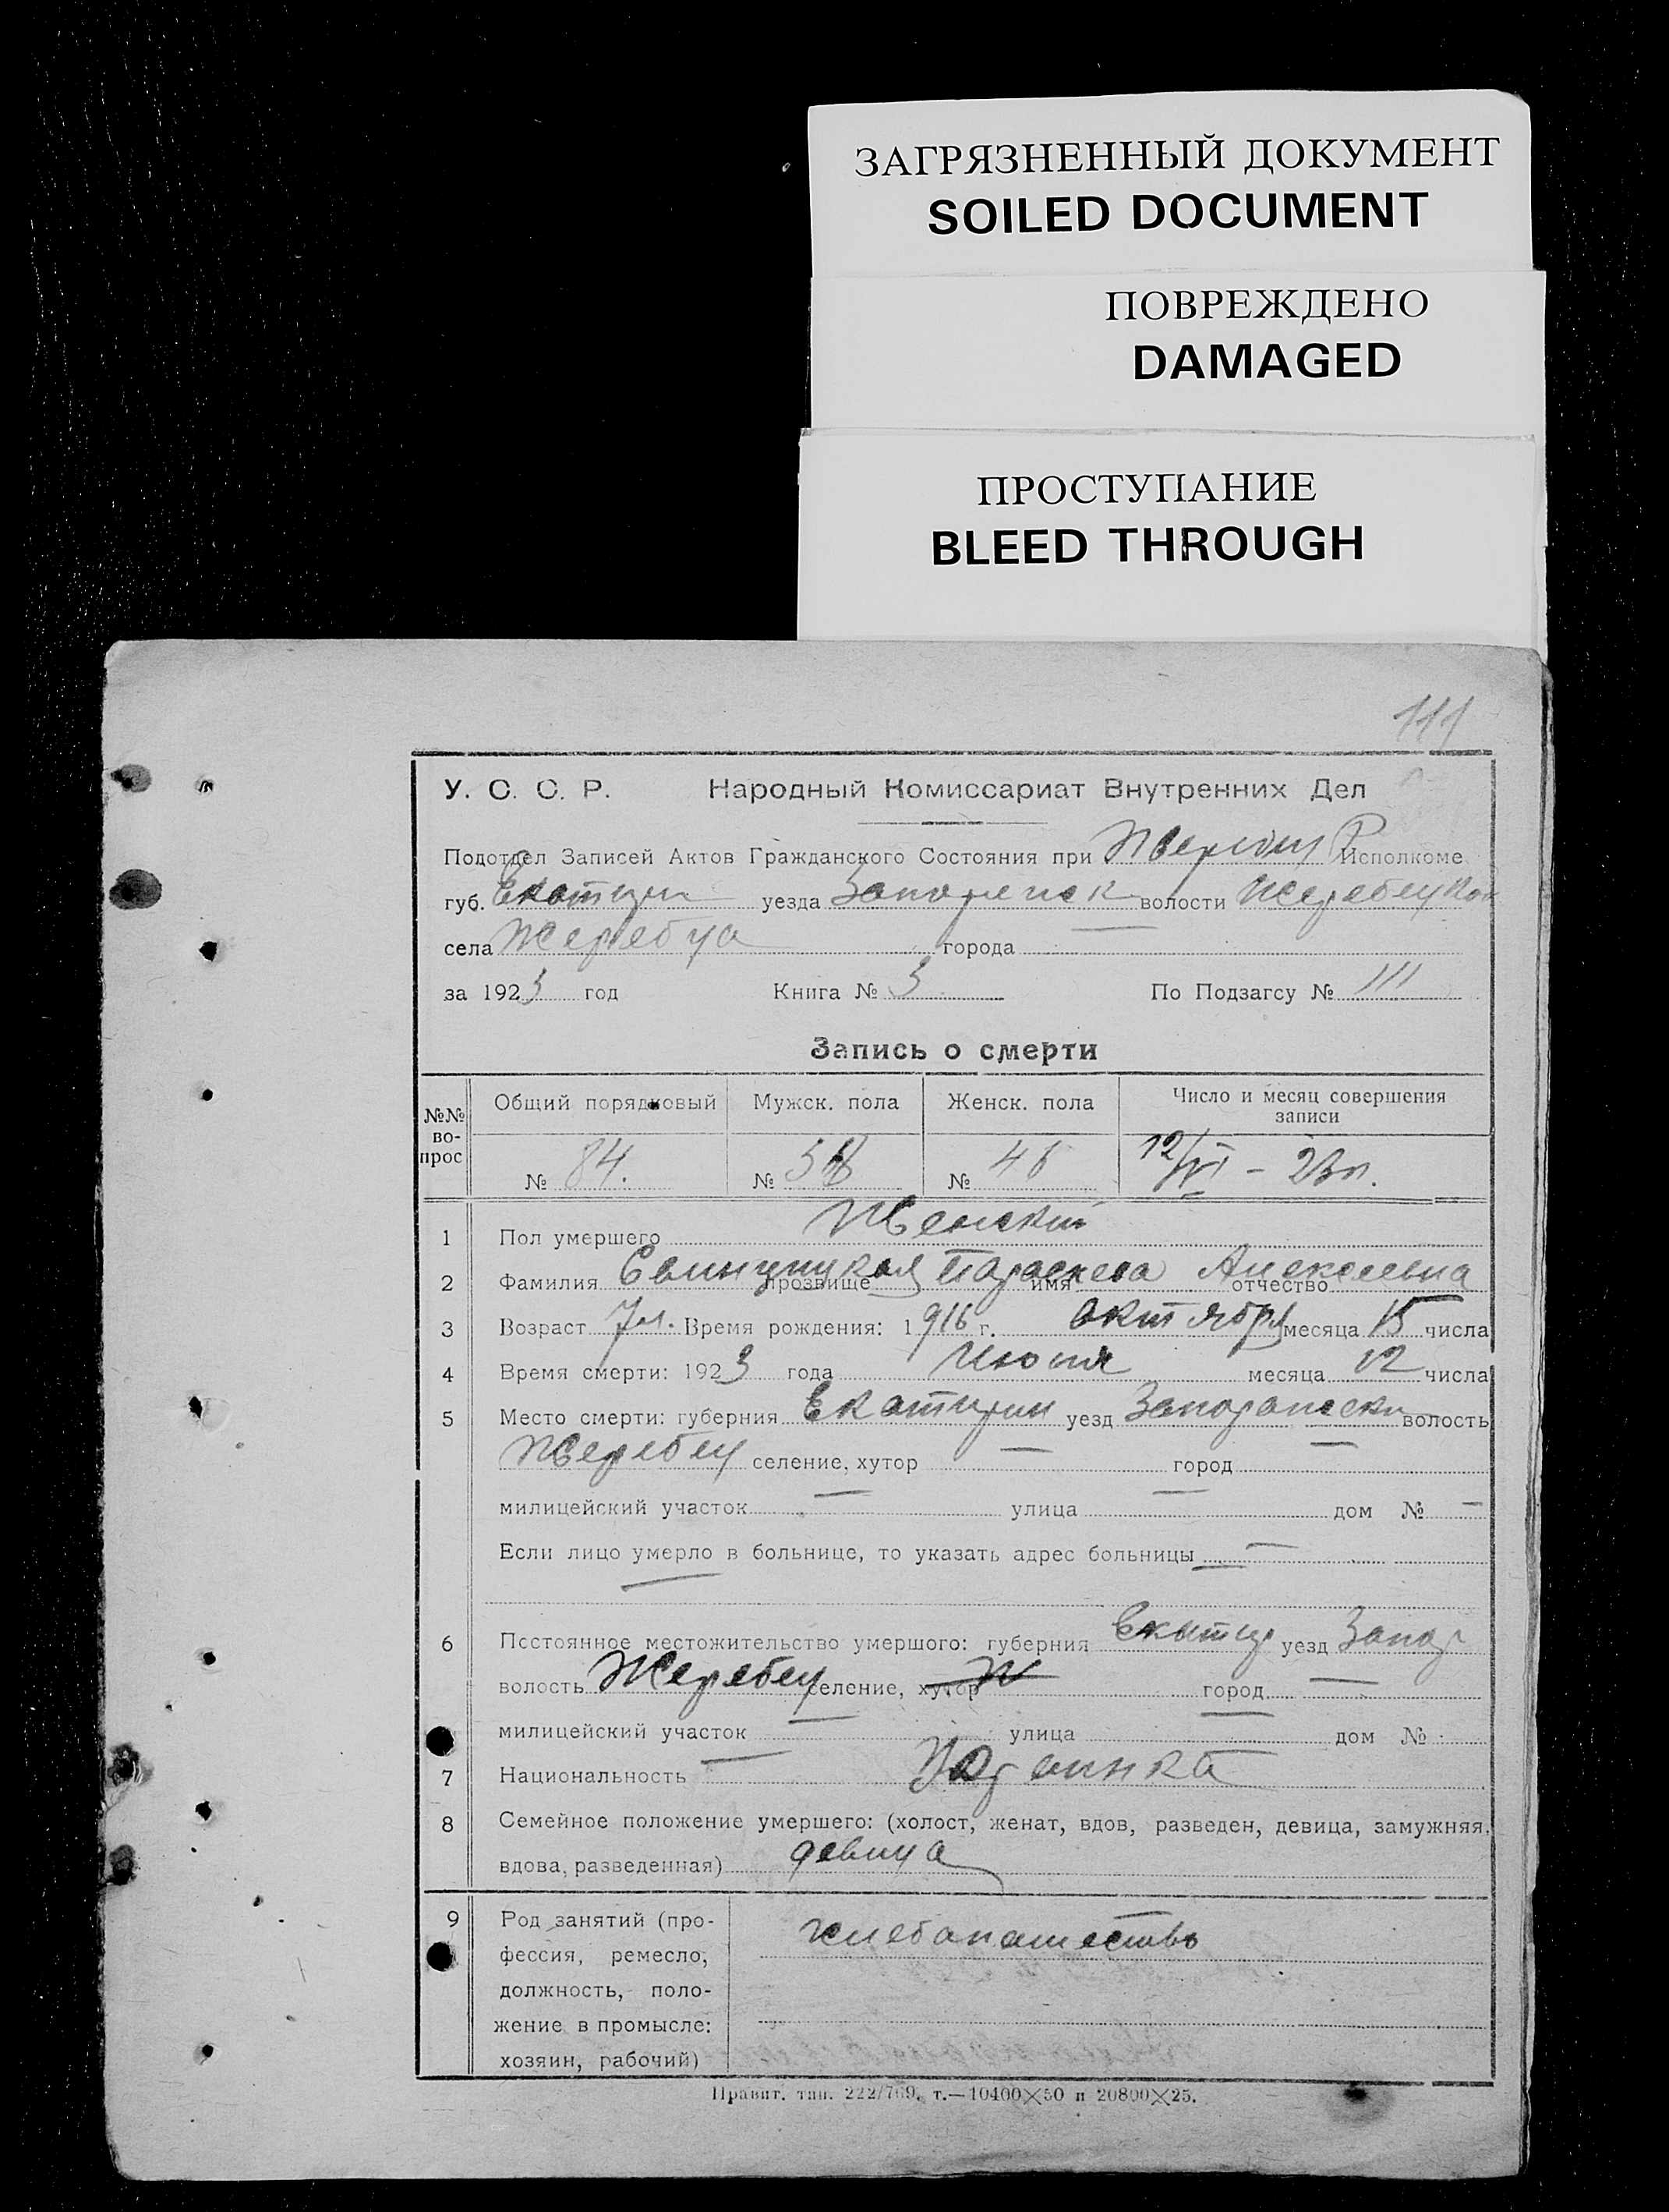 ЗАГРЯЗНЕННЫЙ ДОКУМЕНТ
SOILED DOCUMENT
ПОВРЕЖДЕНО
DAMAGED
ПРОСТУПАНИЕ
BLEED THROUGH
111
У. С. С. Р. Народный Комиссариат Внутренних Дел
Подотдел Записей Актов Гражданского Состояния при Жеребец Р Исполкоме
губ. Екатерин уезда Запорожск волости Жеребецкой
села Жеребца города —
за 1923 год Книга № 3 По Подзагсу № 111
Запись о смерти
№№ во-прос Общий порядковый Мужск. пола Женск. пола Число и месяц совершения записи
№ 84. № 38 № 46 12/VI – 23 г.
1 Пол умершего Женский
2 Фамилия прозвище имя Параскева отчество Алексеевна
3 Возраст 7 л. Время рождения: 1916 г. октября месяца 15 числа
4 Время смерти: 1923 года Июня месяца 12 числа
5 Место смерти: губерния Екатерин уезд Запорожски волость
Жеребец селение, хутор — город —
милицейский участок — улица — дом № —
Если лицо умерло в больнице, то указать адрес больницы —
—
6 Постоянное местожительство умершого: губерния Екатер уезд Запор
волость Жеребец селение, хутор город —
милицейский участок — улица — дом №
7 Национальность — Украинка
8 Семейное положение умершего: (холост, женат, вдов, разведен, девица, замужняя,
вдова, разведенная) девица
9 Род занятий (про-
фессия, ремесло,
должность, поло-
жение в промысле:
хозяин, рабочий)
хлебопашество
Правит. тип. 222/769. т.—10400×50 и 20800×25.